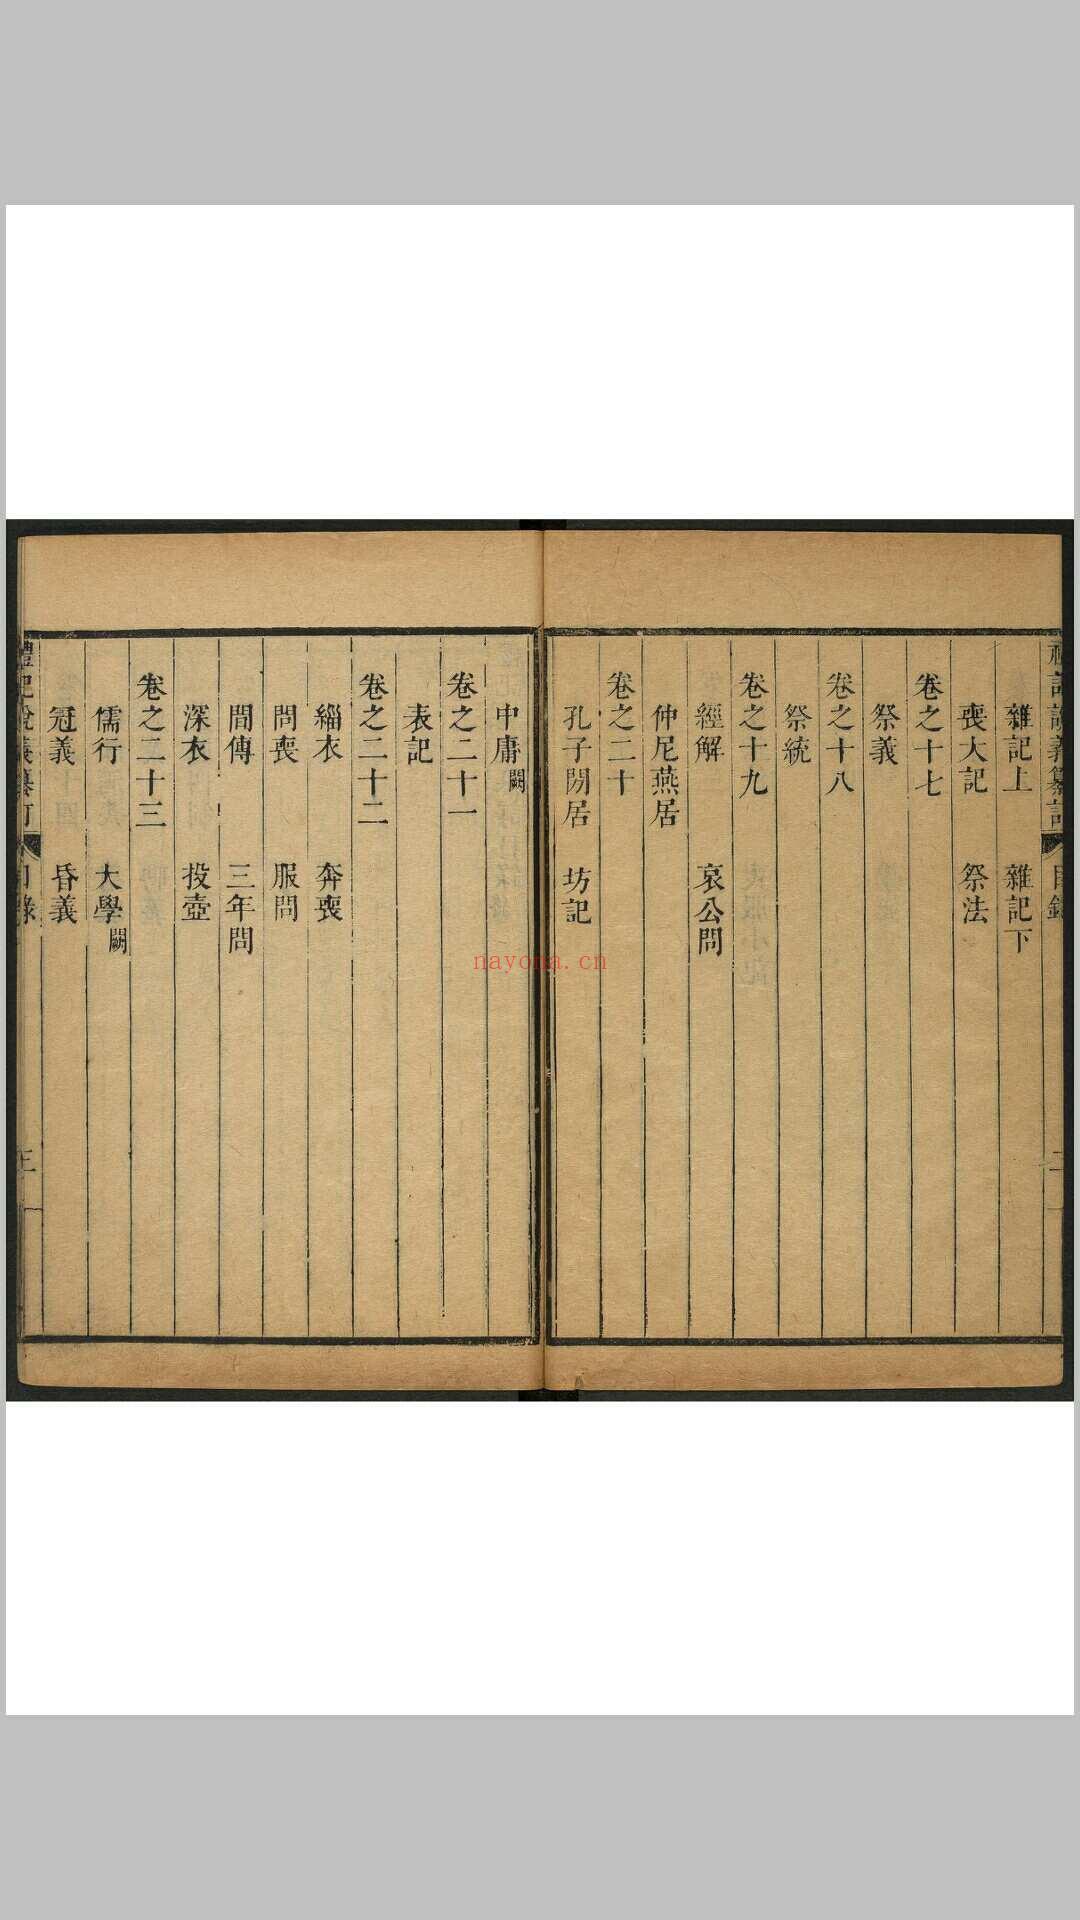 禮記說義纂訂
目錄
二
雜記上 雜記下
喪大記 祭法
卷之十七
祭義
卷之十八
祭統
卷之十九
經解 哀公問
仲尼燕居
卷之二十
孔子閒居 坊記
中庸闕
卷之二十一
表記
卷之二十二
緇衣 奔喪
問喪 服問
間傳 三年問
深衣 投壺
卷之二十三
儒行 大學闕
冠義 昏義
禮記說義纂訂
目錄
三
nayona.cn